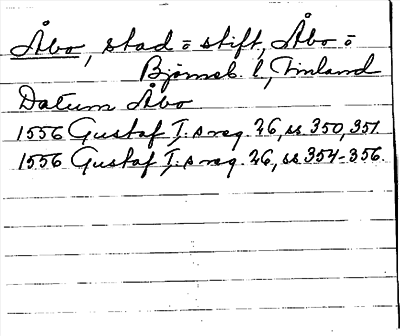 Åbo, stad = stift, Åbo =
Björneb. l, Finland
Datum Åbo
1556 Gustaf I:s reg. 26, ss 350, 351.
1556 Gustaf I:s reg. 26, ss 354-356.